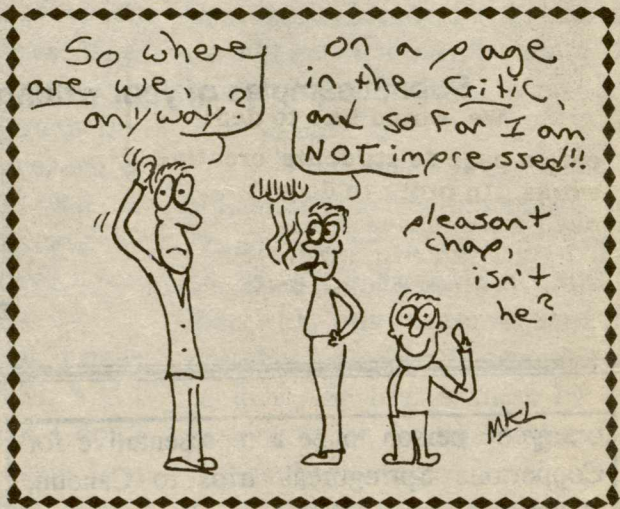 So where
are we,
anyway?
on a page
in the Critic,
and so far I am
NOT impressed!!
pleasant
chap,
isn't
he?
MKL